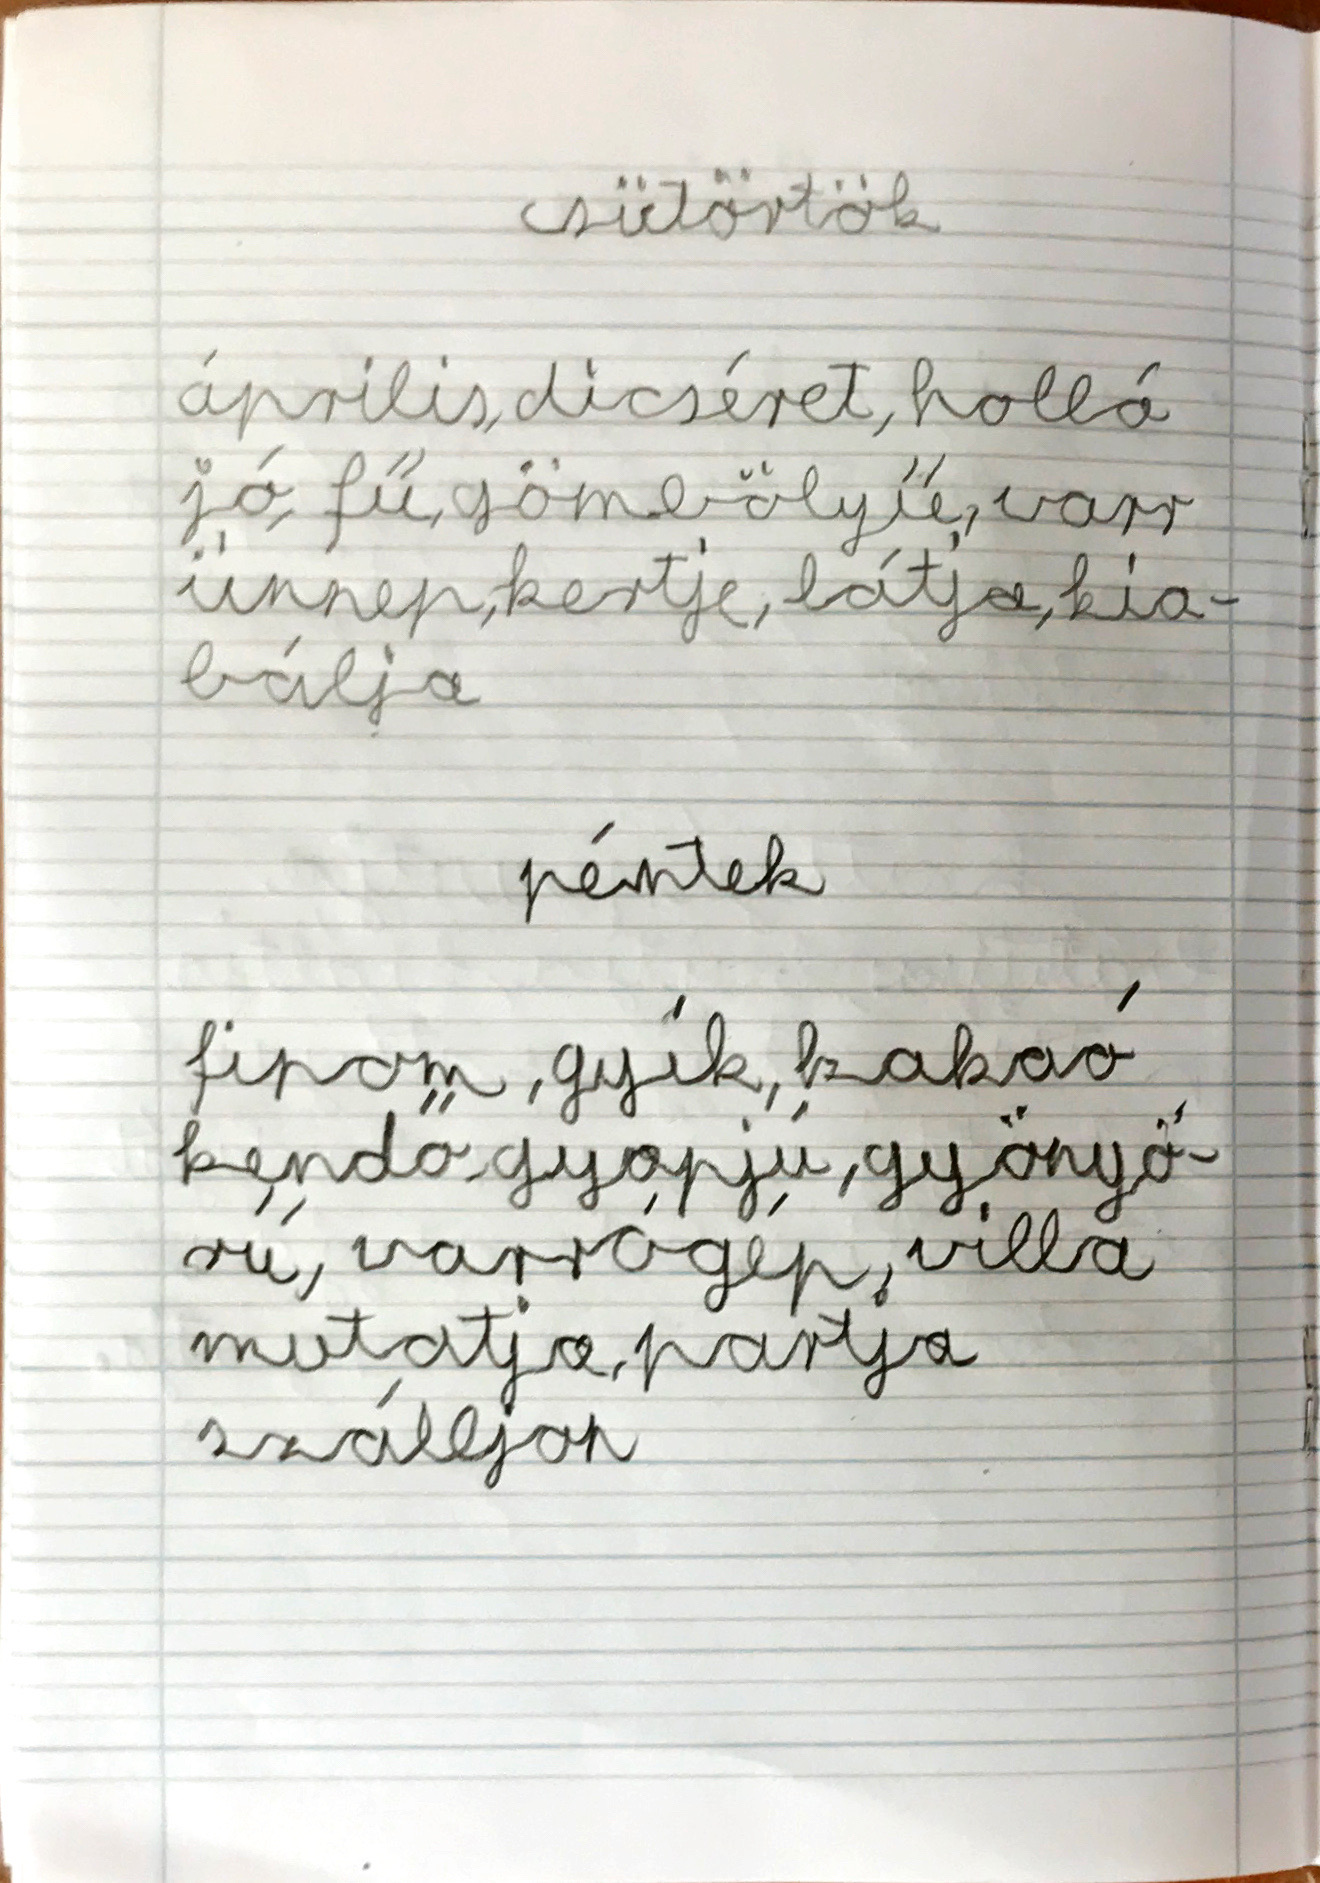 csütörtök
április, dicséret, holló
jó, fű, gömbölyű, varr
ünnep, kertje, látja, kia-
bálja
péntek
finom, gyík, kakaó
kendő, gyapjú, gyönyö-
rű, varrógép, villa
mutatja, partja
szálljon